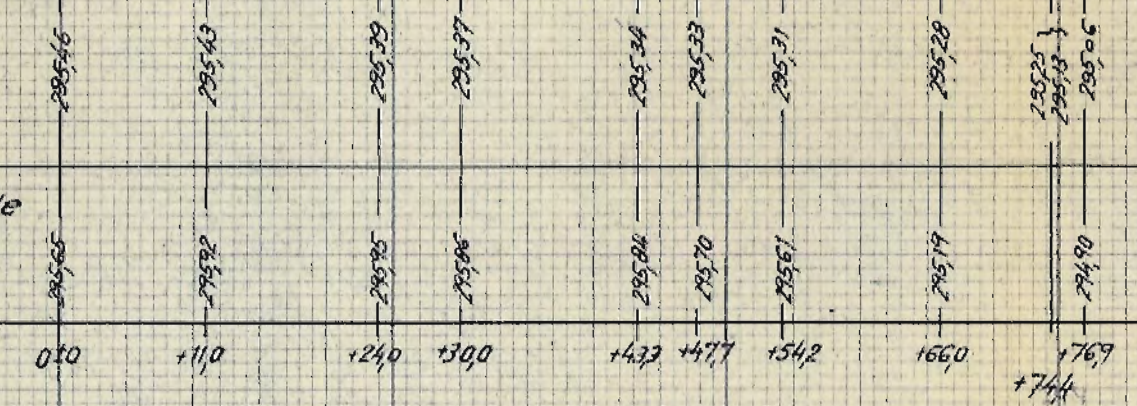 295,46 295,43 295,39 295,37 295,34 295,33 295,31 295,28 295,25 295,13 295,06
295,65 295,92 295,95 295,86 295,84 295,70 295,61 295,19 294,90
0+0 +11,0 +24,0 +30,0 +43,3 +47,7 +54,2 +66,0 +76,9
+74,4